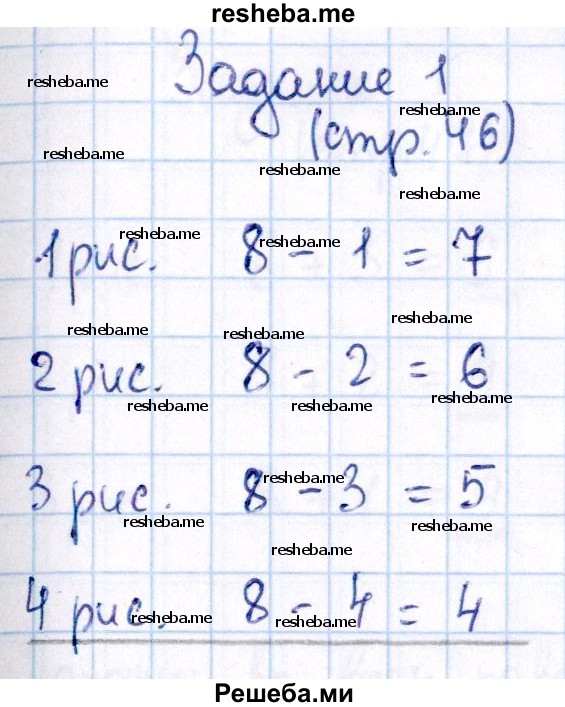 resheba.me
Задание 1
resheba.me
resheba.me
(стр. 46)
resheba.me
resheba.me
resheba.me
resheba.me
resheba.me
1 рис. 8 - 1 = 7
resheba.me
resheba.me
resheba.me
2 рис. 8 - 2 = 6
resheba.me
resheba.me
resheba.me
resheba.me
3 рис. 8 - 3 = 5
resheba.me
resheba.me
resheba.me
4 рис. 8 - 4 = 4
resheba.me
resheba.me
Решеба.ми